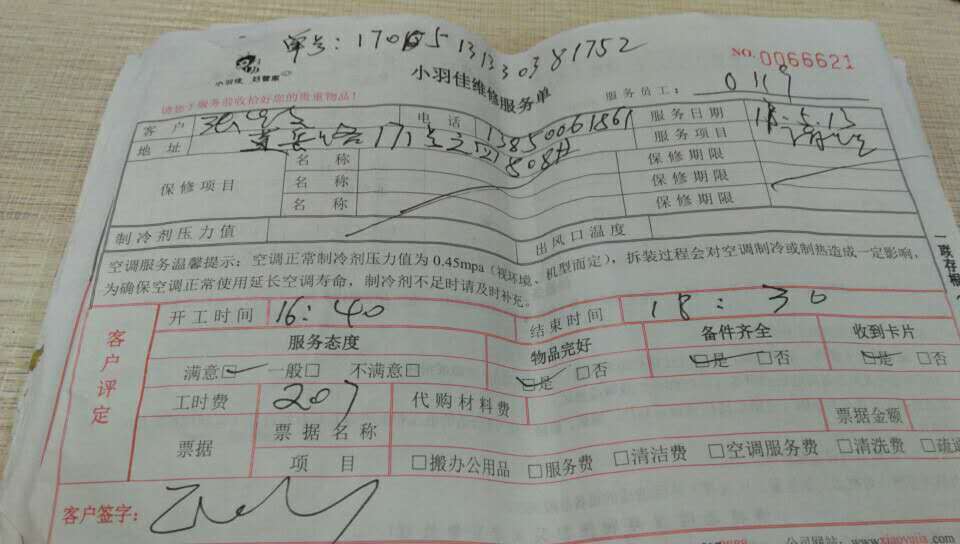 单号：
NO.0066621
小羽佳 好管家
小羽佳维修服务单
服务员工： 0119
请您于服务前收拾好您的贵重物品！
客户 电话 13850061861 服务日期
地址 服务项目
保修项目 名称 保修期限
名称 保修期限
名称 保修期限
制冷剂压力值 出风口温度
空调服务温馨提示：空调正常制冷剂压力值为 0.45mpa（视环境、机型而定），拆装过程会对空调制冷或制热造成一定影响，
为确保空调正常使用延长空调寿命，制冷剂不足时请及时补充。
一联存根
客户评定
开工时间 16：40 结束时间 18：30
服务态度 物品完好 备件齐全 收到卡片
满意□ 一般□ 不满意□ □是 □否 □是 □否 □是 □否
工时费 207 代购材料费
票据 票据名称 票据金额
项目 □搬办公用品 □服务费 □清洁费 □空调服务费 □清洗费 □疏通
客户签字：
公司网站：